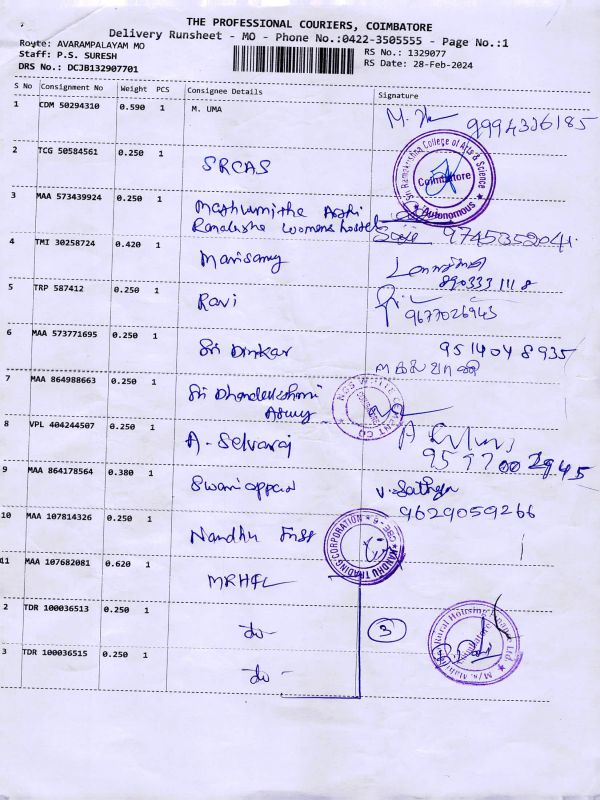 THE PROFESSIONAL COURIERS, COIMBATORE
Delivery Runsheet - MO - Phone No.:0422-3505555 - Page No.:1
Route: AVARAMPALAYAM MO
Staff: P.S. SURESH
DRS No.: DCJB132907701
RS No.: 1329077
RS Date: 28-Feb-2024
S No Consignment No Weight PCS Consignee Details Signature
1 CDM 50294310 0.590 1 M. UMA 9994326185
2 TCG 50584561 0.250 1 SRCAS
Sri Ramakrishna College of Arts & Science
Coimbatore
Autonomous
3 MAA 573439924 0.250 1
womens hostel 9745352041
4 TMI 30258724 0.420 1 Marisamy
890333 1118
5 TRP 587412 0.250 1 Ravi
9677026943
6 MAA 573771695 0.250 1 Sri Dinkar 9514048935
7 MAA 864988663 0.250 1 Sri Dhandekshmi
Agency
8 VPL 404244507 0.250 1 A. Selvaraj
9597002945
9 MAA 864178564 0.380 1 Swamiappan V. Sathya
9629059266
10 MAA 107814326 0.250 1 Nandhu
NANDHU TRADING CORPORATION
CBE-6
11 MAA 107682081 0.620 1 MRHFL
2 TDR 100036513 0.250 1 do - 3
Rural Housing Finance Ltd.
3 TDR 100036515 0.250 1 do -